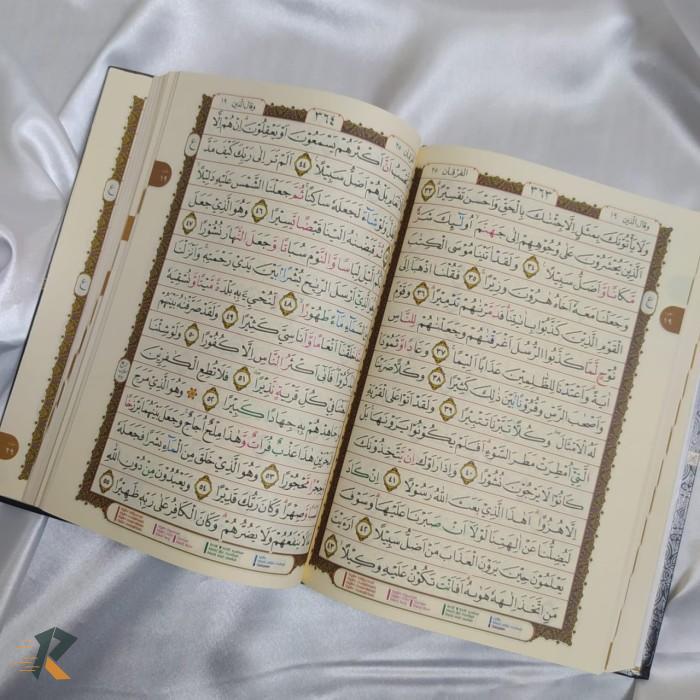 وقال الذين ١٩
٣٦٣
الفرقان ٢٥
وَلَا يَأْتُونَكَ بِمَثَلٍ اِلَّا جِئْنٰكَ بِالْحَقِّ وَاَحْسَنَ تَفْسِيْرًا ۝٣٣
اَلَّذِيْنَ يُحْشَرُوْنَ عَلٰى وُجُوْهِهِمْ اِلٰى جَهَنَّمَ اُولٰۤىِٕكَ شَرٌّ
مَّكَانًا وَّاَضَلُّ سَبِيْلًا ۝٣٤ وَلَقَدْ اٰتَيْنَا مُوْسَى الْكِتٰبَ
وَجَعَلْنَا مَعَهٗٓ اَخَاهُ هٰرُوْنَ وَزِيْرًا ۝٣٥ فَقُلْنَا اذْهَبَآ اِلَى
الْقَوْمِ الَّذِيْنَ كَذَّبُوْا بِاٰيٰتِنَا فَدَمَّرْنٰهُمْ تَدْمِيْرًا ۝٣٦ وَقَوْمَ
نُوْحٍ لَّمَّا كَذَّبُوا الرُّسُلَ اَغْرَقْنٰهُمْ وَجَعَلْنٰهُمْ لِلنَّاسِ
اٰيَةً وَاَعْتَدْنَا لِلظّٰلِمِيْنَ عَذَابًا اَلِيْمًا ۝٣٧ وَعَادًا وَّثَمُوْدَا۟
وَاَصْحٰبَ الرَّسِّ وَقُرُوْنًا بَيْنَ ذٰلِكَ كَثِيْرًا ۝٣٨ وَكُلًّا ضَرَبْنَا
لَهُ الْاَمْثَالَ وَكُلًّا تَبَّرْنَا تَتْبِيْرًا ۝٣٩ وَلَقَدْ اَتَوْا عَلَى الْقَرْيَةِ
الَّتِيْٓ اُمْطِرَتْ مَطَرَ السَّوْءِ اَفَلَمْ يَكُوْنُوْا يَرَوْنَهَا بَلْ
كَانُوْا لَا يَرْجُوْنَ نُشُوْرًا ۝٤٠ وَاِذَا رَاَوْكَ اِنْ يَّتَّخِذُوْنَكَ
اِلَّا هُزُوًا اَهٰذَا الَّذِيْ بَعَثَ اللّٰهُ رَسُوْلًا ۝٤١ اِنْ كَادَ
لَيُضِلُّنَا عَنْ اٰلِهَتِنَا لَوْلَآ اَنْ صَبَرْنَا عَلَيْهَا وَسَوْفَ
يَعْلَمُوْنَ حِيْنَ يَرَوْنَ الْعَذَابَ مَنْ اَضَلُّ سَبِيْلًا ۝٤٢ اَرَءَيْتَ
مَنِ اتَّخَذَ اِلٰهَهٗ هَوٰىهُ اَفَاَنْتَ تَكُوْنُ عَلَيْهِ وَكِيْلًا ۝٤٣
وقال الذين ١٩
٣٦٤
اَنَّ اَكْثَرَهُمْ يَسْمَعُوْنَ اَوْ يَعْقِلُوْنَ اِنْ هُمْ اِلَّا
بَلْ هُمْ اَضَلُّ سَبِيْلًا ۝٤٤ اَلَمْ تَرَ اِلٰى رَبِّكَ كَيْفَ مَدَّ
وَلَوْ شَاۤءَ لَجَعَلَهٗ سَاكِنًا ثُمَّ جَعَلْنَا الشَّمْسَ عَلَيْهِ دَلِيْلًا
قَبَضْنٰهُ اِلَيْنَا قَبْضًا يَّسِيْرًا ۝٤٦ وَهُوَ الَّذِيْ جَعَلَ
الَّيْلَ لِبَاسًا وَّالنَّوْمَ سُبَاتًا وَّجَعَلَ النَّهَارَ نُشُوْرًا ۝٤٧
الَّذِيْٓ اَرْسَلَ الرِّيٰحَ بُشْرًا بَيْنَ يَدَيْ رَحْمَتِهٖ وَاَنْزَلْنَا
السَّمَاۤءِ مَاۤءً طَهُوْرًا ۝٤٨ لِّنُحْيِ‍َۧ بِهٖ بَلْدَةً مَّيْتًا وَّنُسْقِيَهٗ
خَلَقْنَآ اَنْعَامًا وَّاَنَاسِيَّ كَثِيْرًا ۝٤٩ وَلَقَدْ صَرَّفْنٰهُ بَيْنَهُمْ
فَاَبٰىٓ اَكْثَرُ النَّاسِ اِلَّا كُفُوْرًا ۝٥٠ وَلَوْ شِئْنَا
فِيْ كُلِّ قَرْيَةٍ نَّذِيْرًا ۝٥١ فَلَا تُطِعِ الْكٰفِرِيْنَ
وَجَاهِدْهُمْ بِهٖ جِهَادًا كَبِيْرًا ۝٥٢ وَهُوَ الَّذِيْ مَرَجَ
الْبَحْرَيْنِ هٰذَا عَذْبٌ فُرَاتٌ وَّهٰذَا مِلْحٌ اُجَاجٌ وَجَعَلَ بَيْنَهُمَا بَرْزَخًا
مَّحْجُوْرًا ۝٥٣ وَهُوَ الَّذِيْ خَلَقَ مِنَ الْمَاۤءِ بَشَرًا فَجَعَلَهٗ
وَّصِهْرًا وَكَانَ رَبُّكَ قَدِيْرًا ۝٥٤ وَيَعْبُدُوْنَ مِنْ دُوْنِ اللّٰهِ
لَا يَنْفَعُهُمْ وَلَا يَضُرُّهُمْ وَكَانَ الْكَافِرُ عَلٰى رَبِّهٖ ظَهِيْرًا ۝٥٥